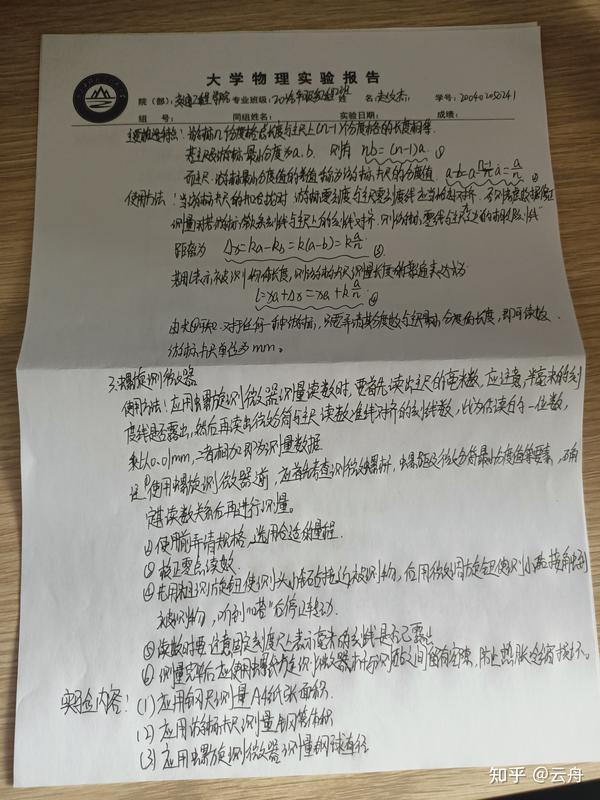 大学物理实验报告
院（部）：交通工程学院 专业班级： 姓 名： 学号：200402050241
组 号： 同组姓名： 实验日期： 成绩：
主要构造特点：游标n个分度格总长度与主尺上(n-1)个分度格的长度相等.
若主尺及游标最小分度为a.b. 则有 nb=(n-1)a. ①
而主尺、游标最小分度值的差值称为游标卡尺的分度值. a-b=a-\frac{n-1}{n}a=\frac{a}{n}
使用方法：当游标卡尺的
距离为 Δx=ka-kb=k(a-b)=k\frac{a}{n} ③
若用l表示被测物体长度，则游标卡尺测量长度的普遍表达式为
l=xa+Δx=xa+k\frac{a}{n} ④
由式④可知.对于任何一种游标，只要弄清其分度数与主尺最小分度值的长度，即可读数.
游标卡尺单位为mm。
3.螺旋测微器
使用方法：应用螺旋测微器测量读数时，要首先读出主尺的毫米数，应注意，半毫米的刻
度线是否露出，然后再读出微分筒与主尺读数准线对齐的刻线数，此为估读的一位数，
乘以0.01mm，二者相加即为测量数据
定其读数关系后再进行测量。
②使用前弄清规格，选用合适的量程.
③校正零点读数.
④先用粗测旋钮使测头小砧接近被测物，后用微调旋钮使测小砧接触到
被测物，听到"嗒"后停止转动.
⑤读数时要注意固定刻度尺上表示毫米的刻线是否已露出
⑥测量完毕后应使用螺旋测微器 之间留有空隙，防止热胀
实验内容：(1)应用钢尺测量A4纸张面积.
(2)应用游标卡尺测量钢管体积
(3)应用螺旋测微器测量钢球直径
知乎 @云舟